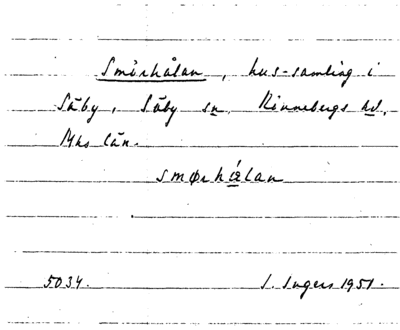 Smörhålan, hus-samling i
Säby, Säby sn Rinnebergs hd,
Mhs län.
smørhǽlan
5034. I. Ingers 1951.